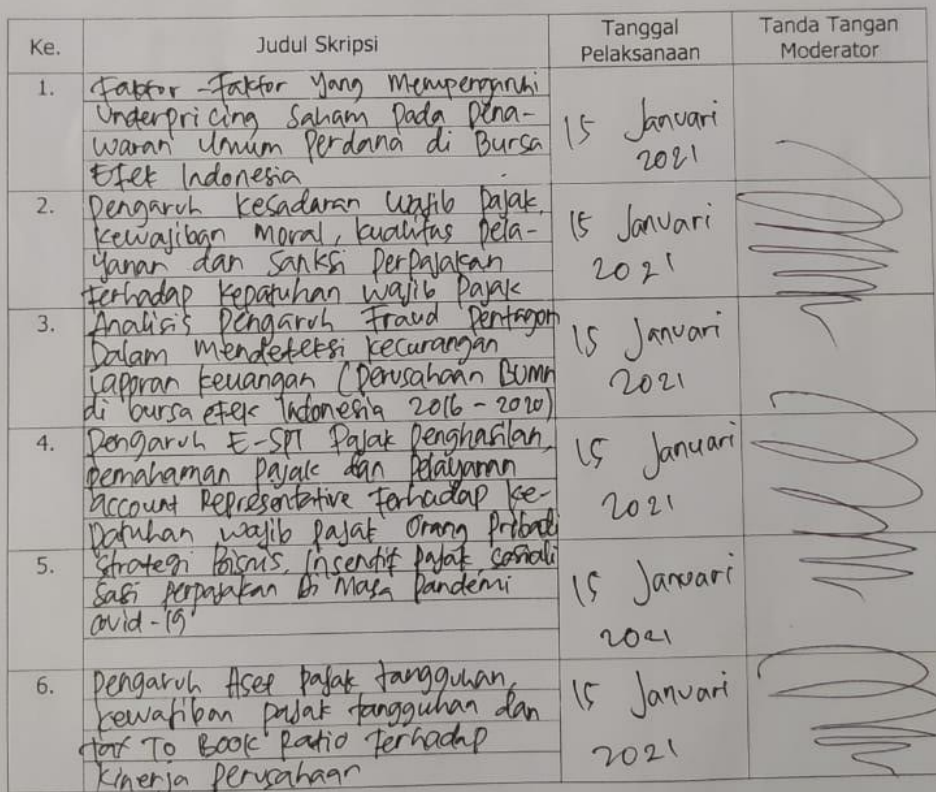 Ke. Judul Skripsi Tanggal Pelaksanaan Tanda Tangan Moderator
1. Faktor - Faktor yang Mempengaruhi
Underpricing Saham Pada Pena-
waran Umum Perdana di Bursa
Efek Indonesia
15 Januari
2021
2. Pengaruh Kesadaran Wajib Pajak,
Kewajiban Moral, kualitas Pela-
yanan dan Sanksi Perpajakan
terhadap Kepatuhan Wajib Pajak
15 Januari
2021
3. Analisis Pengaruh Fraud Pentagon
Dalam Mendeteksi Kecurangan
Laporan keuangan (Perusahaan BUMN
di bursa efek Indonesia 2016 - 2020)
15 Januari
2021
4. Pengaruh E-SPT Pajak Penghasilan,
pemahaman Pajak dan Pelayanan
account Representative terhadap Ke-
Patuhan wajib Pajak Orang Pribadi
15 Januari
2021
5. Strategi Bisnis, Insentif Pajak, sosiali
sasi perpajakan Di Masa Pandemi
covid-19
15 Januari
2021
6. Pengaruh Aset Pajak tangguhan,
kewajiban pajak tangguhan dan
tax To Book Ratio Terhadap
Kinerja Perusahaan
15 Januari
2021